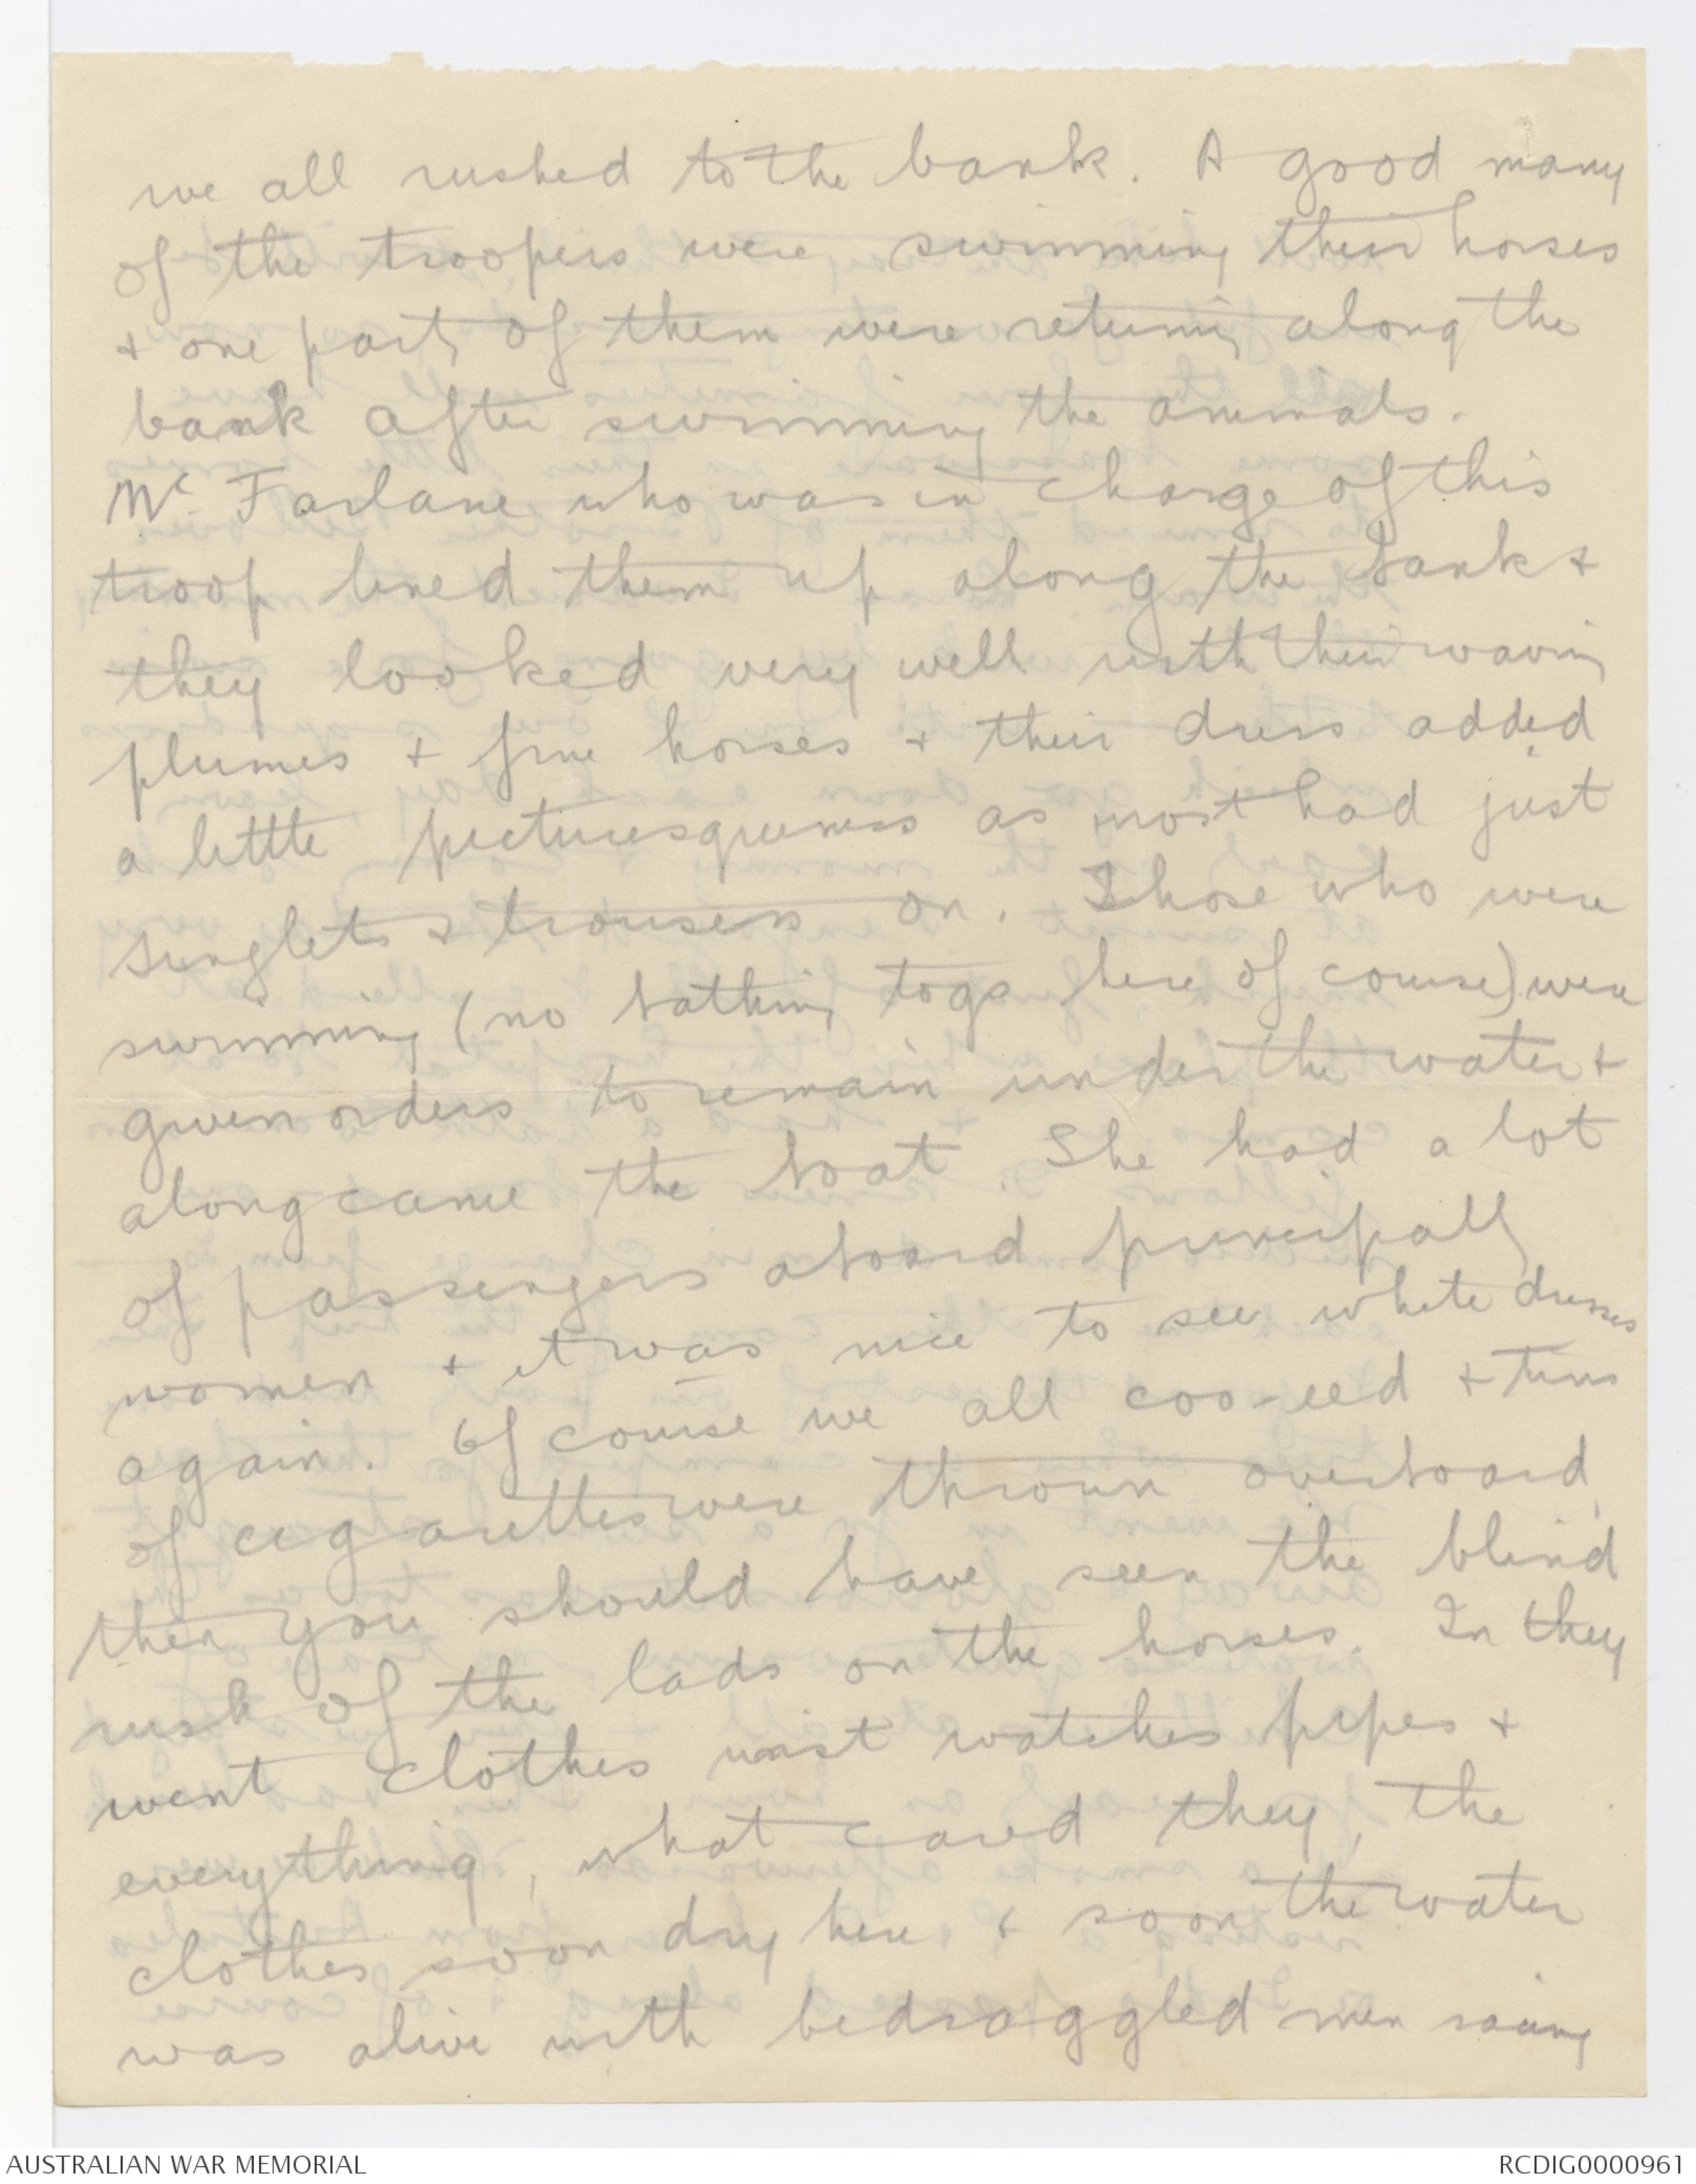 we all rushed to the bank. A good many
of the troopers were swimming their horses
+ one party of them were returning along the
bank after swimming the animals.
Mc Farlane who was in charge of this
troop lined them up along the bank +
they looked very well with their waving
plumes + fine horses + their dress added
a little picturesqueness as most had just
singlets & trousers on. Those who were
swimming (no bathing togs here of course) were
given orders to remain under the water +
along came the boat. She had a lot
of passengers aboard principally
women + it was nice to see white dresses
again. Of course we all coo-eed + tins
of cigarettes were thrown overboard,
then you should have seen the blind
rush of the lads on the horses. In they
went clothes wrist watches pipes +
everything, what cared they, the
clothes soon dry here & soon the water
was alive with bedraggled men racing
AUSTRALIAN WAR MEMORIAL
RCDIG0000961